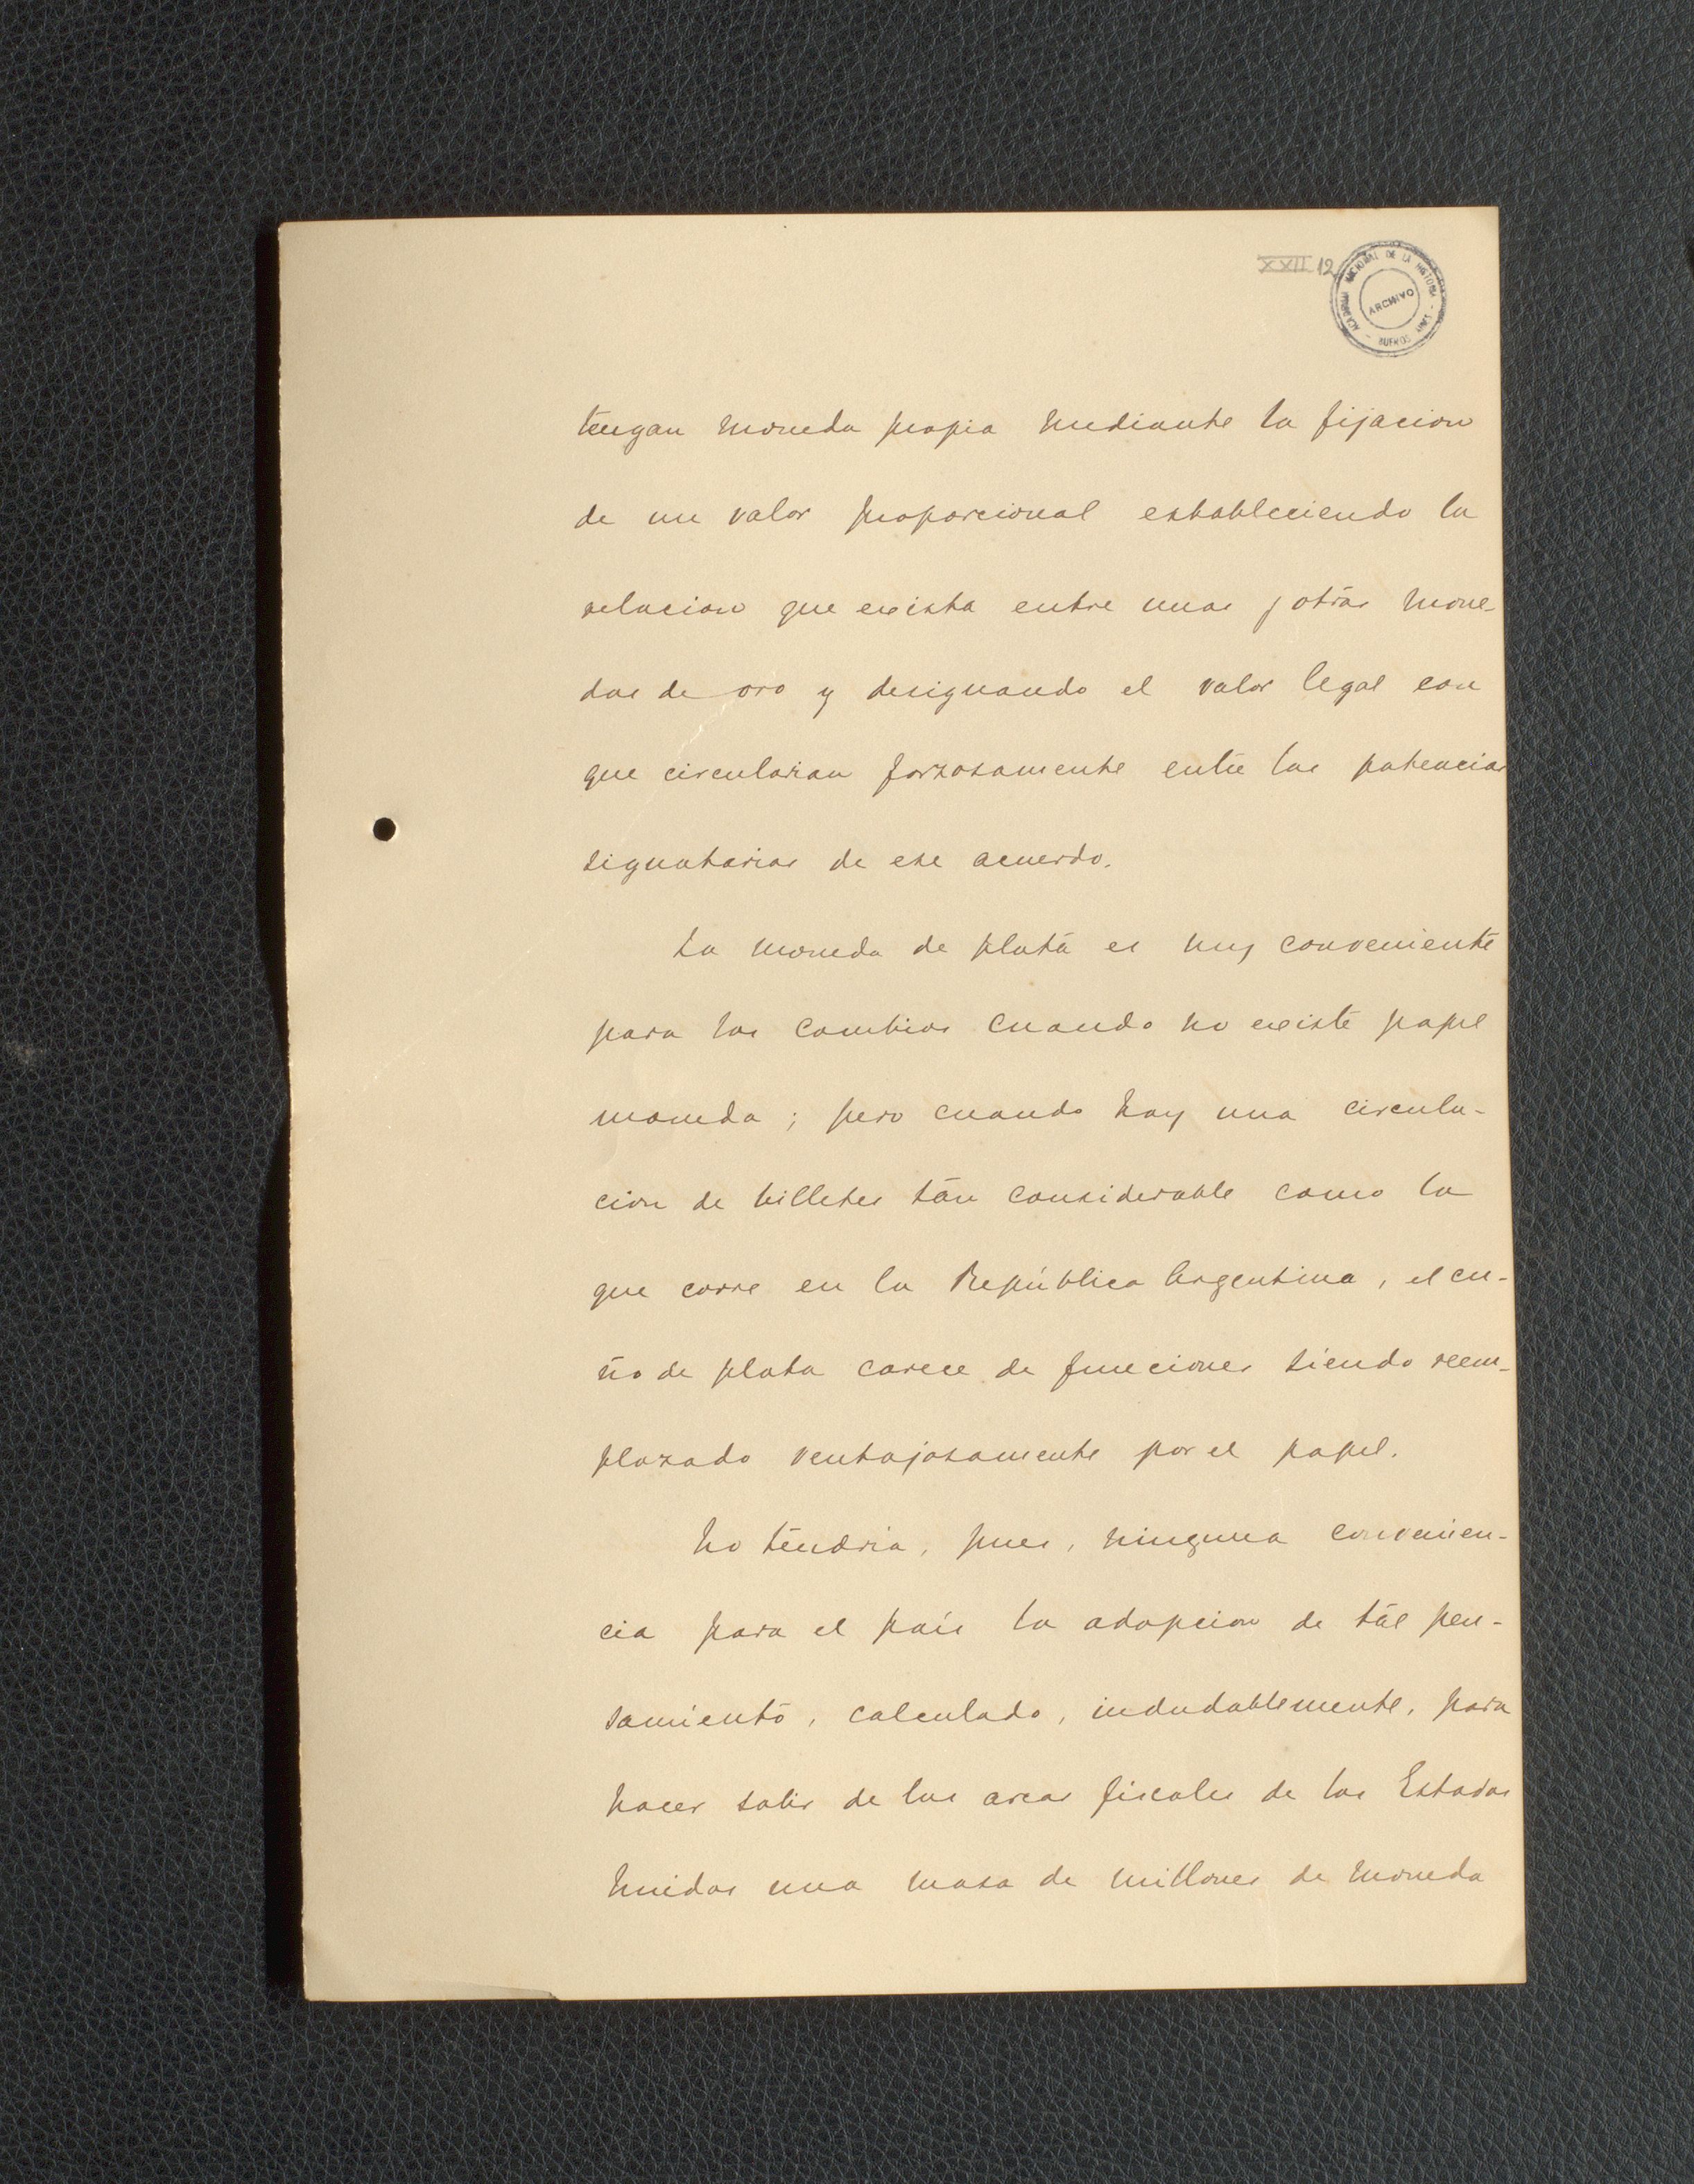 XXII 12
ACADEMIA NACIONAL DE LA HISTORIA - BUENOS
ARCHIVO
tengan moneda propia mediante la fijacion
de un valor proporcional estableciendo la
relacion que exista entre unas y otras mone-
das de oro y designando el valor legal con
que circularian forzosamente entre las potencias
signatarias de ese acuerdo.
La moneda de plata es muy conveniente
para los cambios cuando no existe papel
moneda; pero cuando hay una circula-
cion de billetes tan considerable como la
que corre en la República Argentina, el cu-
ño de plata carece de funciones siendo reem-
plazado ventajosamente por el papel.
No tendria, pues, ninguna convenien-
cia para el país la adopcion de tal pen-
samiento, calculado, indudablemente, para
hacer salir de las arcas fiscales de los Estados
Unidos una masa de millones de moneda